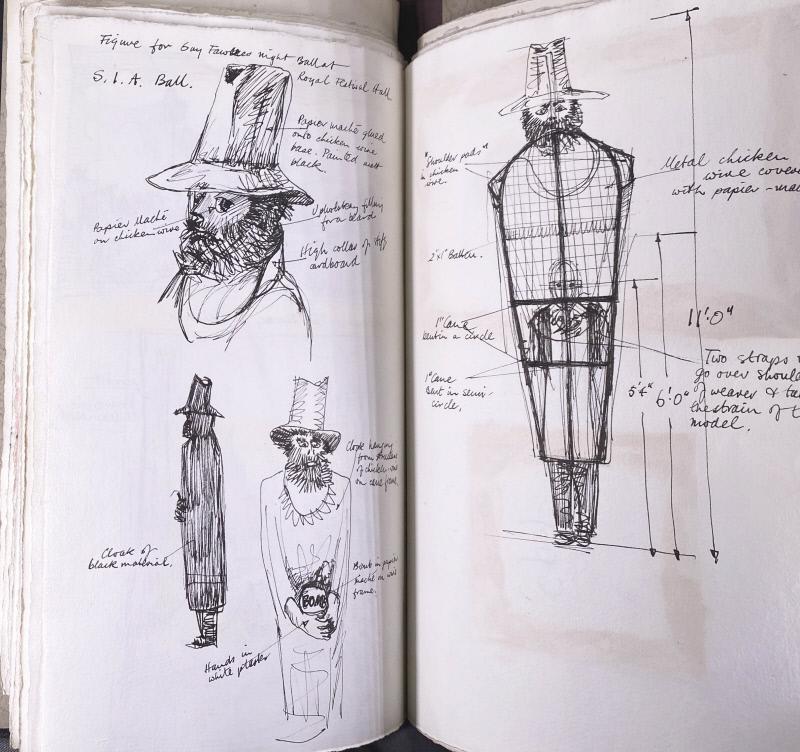 Figure for Guy Fawkes night Ball at
S.I.A. Ball. Royal Festival Hall
Papier maché glued
onto chicken wire
base. Painted matt
black.
Papier Maché
on chicken wire
Upholstery filling
for a beard
High collar of stiff
cardboard
Cloak of
black material.
Cloak hanging
from shoulders
of chicken-wire
on cane frame.
Bomb in papier
maché on wire
frame.
BOMB
Hands in
white plaster
"Shoulder pads"
in chicken
wire.
Metal chicken
wire cove
with papier-ma
2"x1" Batten.
1" Cane
bent in a circle
1" Cane
bent in semi-
circle.
11'.0"
5'4"
6'.0"
Two straps
go over shoul
of wearer & ta
the strain of t
model.